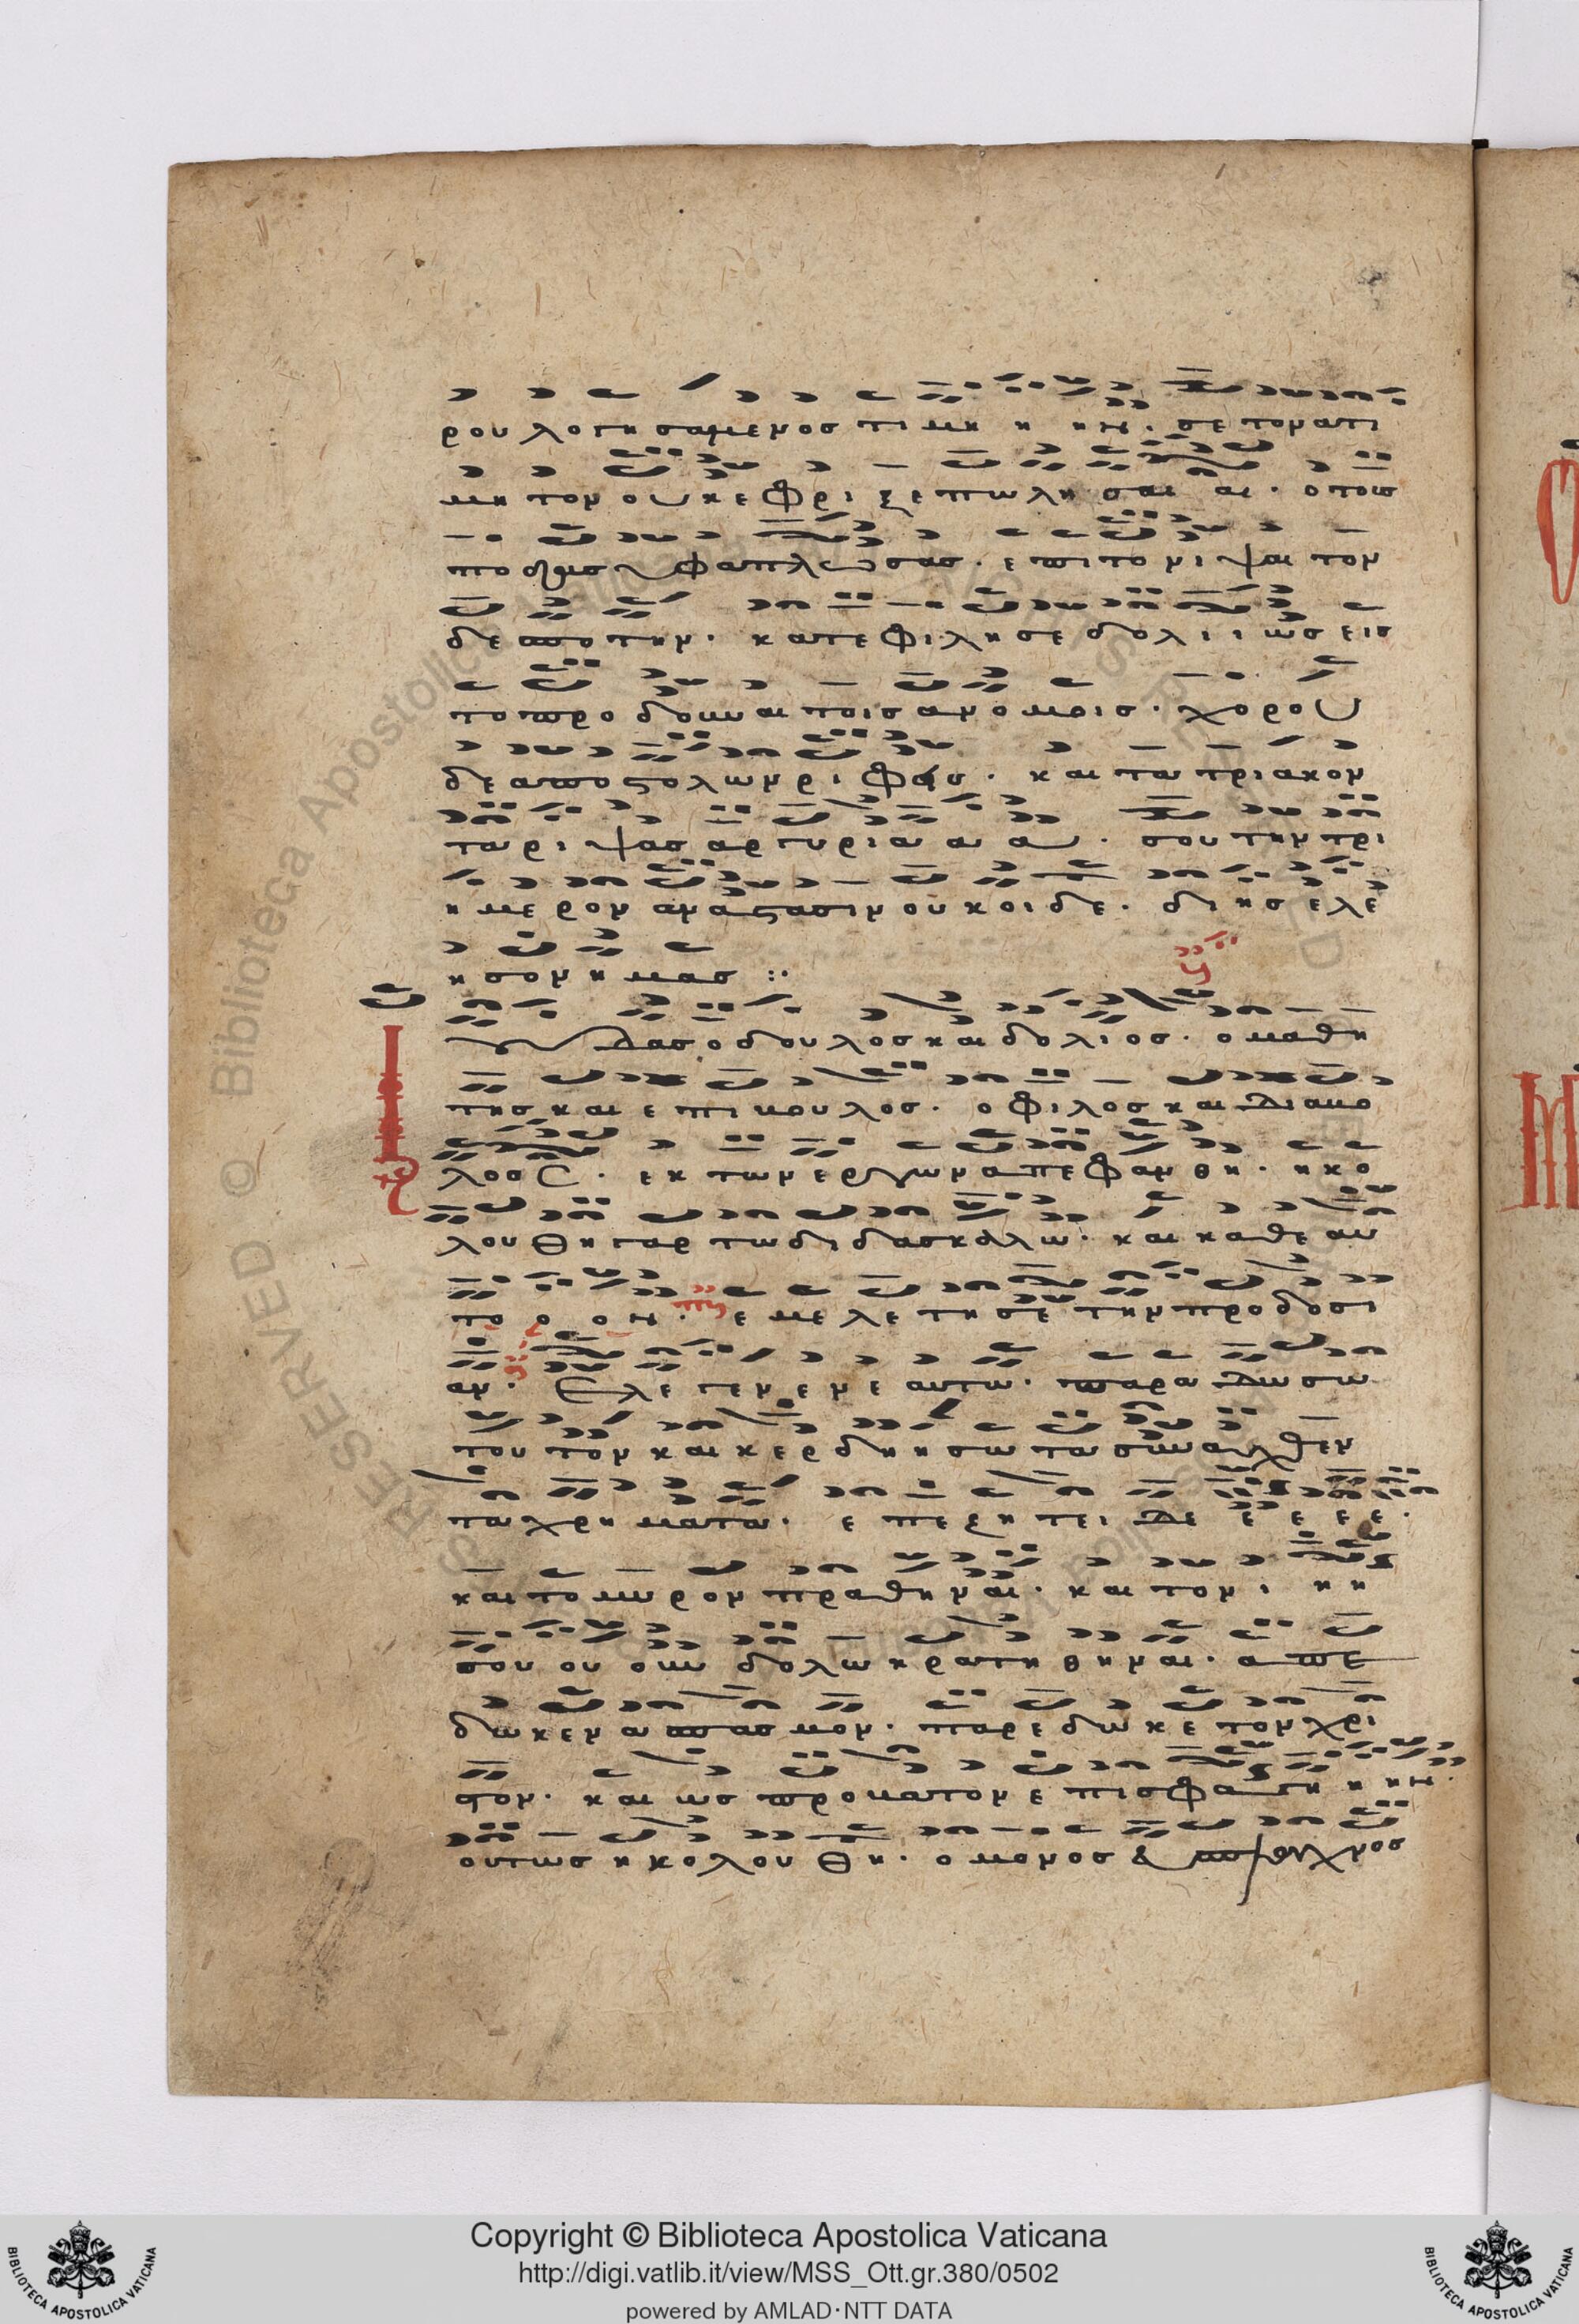 ρου λογησαμενος τι μη η ην · σε τον ατι
μητον ουκ εφριξε πωλησαι αι · ο τους
ποδας υφαπλωσας · επι το νιψαι τον
δεσποτην · κατεφιλησε δολιιως εις
το προδουναι τοις ανομοις · χορου
δε αποστολων ριφεις · και τα τριακον
τα ριψας αργυρια α α · σου την τρι
ημερον αναστασιν ουκ οιδε · δι ης ελε
ησον ημας :·
Ιουδας ο δουλος και δολιος · ο μαθη
της και επιβουλος · ο φιλος και διαβο
λος · εκ των εργων απεφανθη · ηκο
λουθη γαρ τω διδασκαλω · και καθ εαυ
το ο ον · εμελετησε την προδοσι
αν · Ελεγεν εν εαυτω · παραδωσω
τουτον και κερδηησω τα συναχθεν
τα χρηματα · επεζητει δε ε ε ε ε ·
και το μυρον πραθηναι · και τον ι η η
σου ου ουν δολω κρατηθηναι · απε
δωκεν ασπασμον · παρεδωκε τον χρι
στον · και ως προβατον επι σφαγη η ην ·
ουτως ηκολουθη · ο μονος ευσπλαγχνος
Copyright © Biblioteca Apostolica Vaticana
http://digi.vatlib.it/view/MSS_Ott.gr.380/0502
powered by AMLAD·NTT DATA
BIBLIOTECA APOSTOLICA VATICANA
BIBLIOTECA APOSTOLICA VATICANA